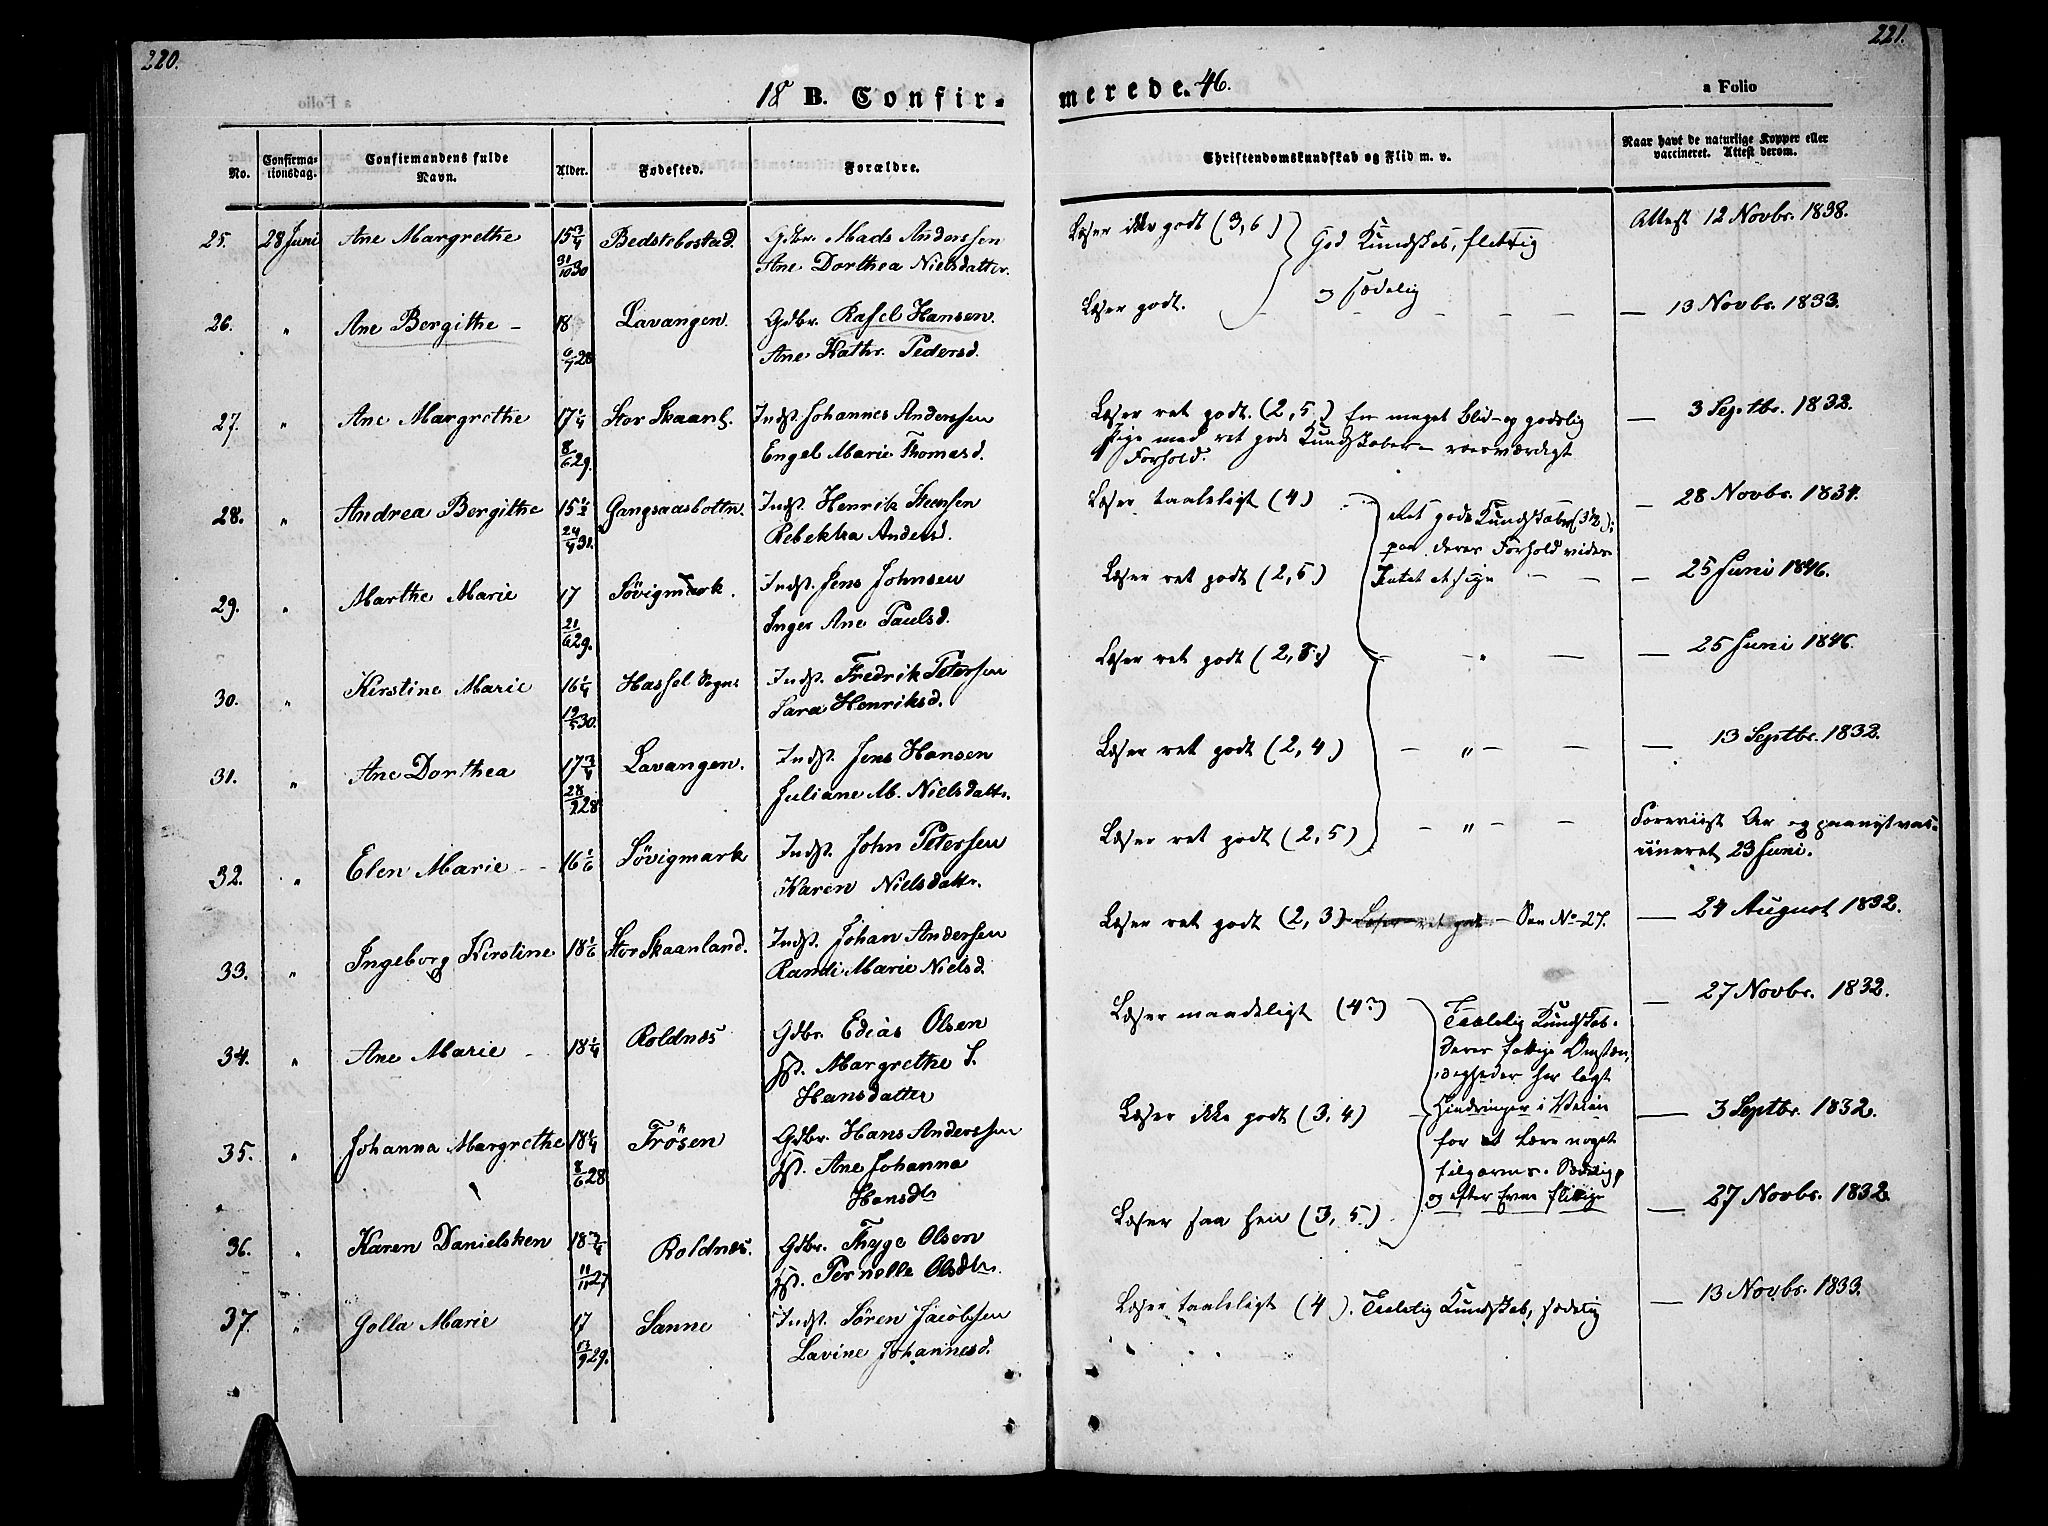 220.
221.
18 B. Confir-
merede. 46.
a Folio
No.
Confirma-
tionsdag.
Confirmandens fulde
Navn.
Alder.
Fødested.
Forældre.
Christendomskundskab og Flid m. v.
Naar havt de naturlige Kopper eller
vaccineret. Attest derom.
25. 28 Juni Ane Margrethe 15 3/4 Bedstebostad. Gdbr. Mads Anderssen
31/10 30 Ane Dorthea Nielsdatter.
Læser ikke godt (3,6) God Kundskab, flittig Attest 12 Novbr. 1838.
og sædelig
26. " Ane Bergithe - 18 Lavangen. Gdbr. Rasel Hansen.
6/7 28 Ane Kathr. Pedersd.
Læser godt. — 13 Novbr. 1833.
27. " Ane Margrethe 17 1/4 Stor Skaanl. Indst. Johannes Anderssen
8/6 29. Engel Marie Thomasd.
Læser ret godt. (2,5.) En meget blid- og godslig — 3 Septbr. 1832.
Pige med ret gode Kundskaber - roesværdigt
Forhold.
28. " Andrea Bergithe 15 1/2 Gangsaasbottn. Indst. Henrik Steensen
24/4 31. Rebekka Andersd.
Læser taaleligt (4) Ret gode Kundskaber (3 1/2); — 28 Novbr. 1834.
paa deres Forhold vides
29. " Marthe Marie 17 Sövigmark. Indst. Jens Johnsen
21/6 29. Inger Ane Paulsd.
Læser ret godt (2,5) Intet at sige — — — 25 Juni 1846.
30. " Kirstine Marie 16 1/4 Hassel Sogn Indst. Fredrik Petersen
19/5 30. Sara Henriksd.
Læser ret godt (2,8.) — " — — 25 Juni 1846.
31. " Ane Dorthea 17 3/4 Lavangen. Indst. Jens Hansen
28/9 28 Juliane M. Nielsdattr.
Læser ret godt (2,4) — " — — — 13 Septbr. 1832.
32. " Elen Marie - - 16 1/6 Sövigmark Indst. John Petersen
Karen Nielsdattr.
Læser ret godt (2,5) — " — — Foreviist Ar og paanyt vac-
cineret 23 Juni.
33. " Ingeborg Kirstine 18 1/6 Stor Skaanland. Indst. Johan Andersen
Randi Marie Nielsd.
Læser ret godt (2,3) Læser ret godt - Som No 27. — 24 August 1832.
34. " Ane Marie - 18 1/4 Roldnæs Gdbr. Edias Olsen
H. Margrethe S.
Hansdatter
Læser maadeligt (4?) Taalelig Kundskab. — 27 Novbr. 1832.
Deres fattige Omstæn-
digheder har lagt
35. " Johanna Margrethe 18 1/4 Trösen Gdbr. Hans Anderssen
8/6 28 H. Ane Johanna
Hansdtr
Læser ikke godt (3,4) Hindringer i Veien — 3 Septbr. 1832.
for at lære noget
tilgavns. Sædelige
og efter Evne flittige
36. " Karen Danielsken 18 3/4 Roldnæs. Gdbr. Thyge Olsen
11/11 27 H. Pernelle Olsdtr.
Læser saa hen (3,5.) — 27 Novbr. 1832.
37. " Golla Marie 17 Sanne Indst. Sören Jacobsen
13/9 29. Lavine Johannesd.
Læser taaleligt (4). Taalelig Kundskab, sædelig — 13 Novbr. 1833.